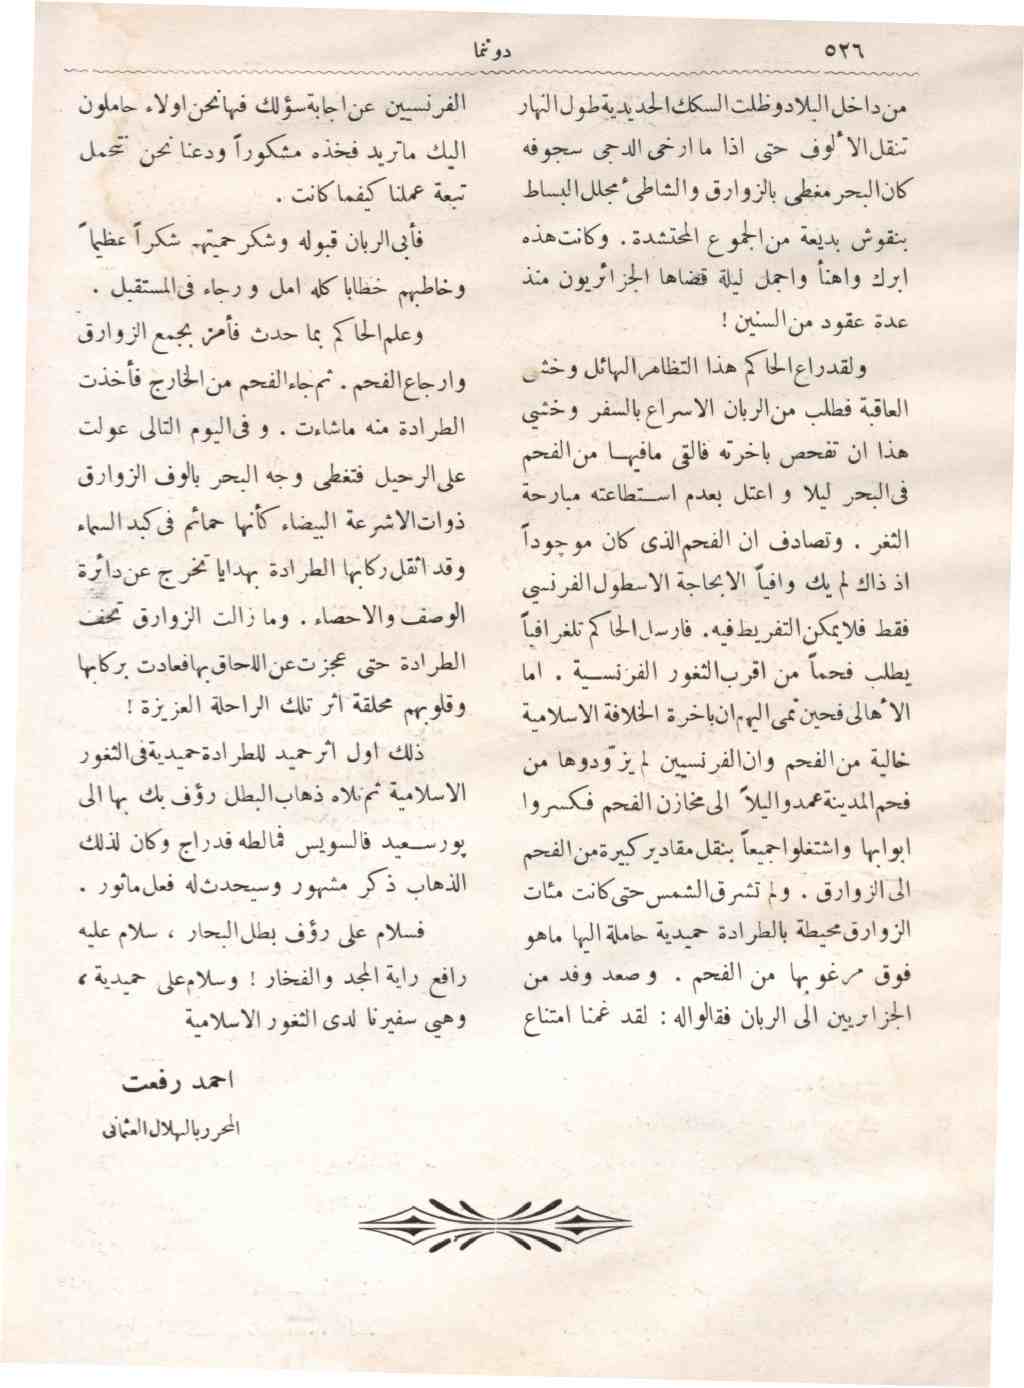 ٥٢٦
دوننما
من داخل البلاد وظلت السكك الحديدية طول النهار
تنقل الألوف حتى اذا ما ارخى الدجى سجوفه
كان البحر مغطى بالزوارق والشاطئ مجلل البساط
بنقوش بديعة من الجموع المحتشدة . وكانت هذه
ابرك واهنأ واجمل ليلة قضاها الجزائريون منذ
عدة عقود من السنين !
ولقد راع الحاكم هذا التظاهر الهائل وخشى
العاقبة فطلب من الربان الاسراع بالسفر وخشي
هذا ان تفحص باخرته فالقى مافيها من الفحم
فى البحر ليلا و اعتل بعدم استطاعته مبارحة
الثغر . وتصادف ان الفحم الذى كان موجوداً
اذ ذاك لم يك وافياً الا بحاجة الاسطول الفرنسي
فقط فلايمكن التفريط فيه . فارسل الحاكم تلغرافياً
يطلب فحماً من اقرب الثغور الفرنسية . اما
الأهالى فحين نمى اليهم ان باخرة الخلافة الاسلامية
خالية من الفحم وان الفرنسيين لم يزوّدوها من
فحم المدينة عمدوا ليلاً الى مخازن الفحم فكسروا
ابوابها واشتغلوا جميعاً بنقل مقادير كبيرة من الفحم
الى الزوارق . ولم تشرق الشمس حتى كانت مئات
الزوارق محيطة بالطرادة حميدية حاملة اليها ماهو
فوق مرغوبها من الفحم . وصعد وفد من
الجزائريين الى الربان فقالوا له : لقد غمنا امتناع
الفرنسيين عن اجابة سؤلك فهانحن اولاء حاملون
اليك ماتريد فخذه مشكوراً ودعنا نحن نتحمل
تبعة عملنا كيفما كانت .
فأبى الربان قبوله وشكر حميتهم شكراً عظيماً
وخاطبهم خطابا كله امل ورجاء فى المستقبل .
وعلم الحاكم بما حدث فأمر بجمع الزوارق
وارجاع الفحم . ثم جاء الفحم من الخارج فأخذت
الطرادة منه ماشاءت . و فى اليوم التالى عولت
على الرحيل فتغطى وجه البحر بالوف الزوارق
ذوات الاشرعة البيضاء كأنها حمائم فى كبد السماء
وقد اثقل ركابها الطرادة بهدايا تخرج عن دائرة
الوصف والاحصاء . وما زالت الزوارق تحف
الطرادة حتى عجزت عن اللحاق بها فعادت بركابها
وقلوبهم محلقة اثر تلك الراحلة العزيزة !
ذلك اول اثر حميد للطرادة حميدية فى الثغور
الاسلامية ثم تلاه ذهاب البطل رؤف بك بها الى
پور سعيد فالسويس فمالطه فدراج وكان لذلك
الذهاب ذكر مشهور وسيحدث له فعل ماثور .
فسلام على رؤف بطل البحار ، سلام عليه
رافع راية المجد والفخار ! وسلام على حميدية ،
وهي سفيرنا لدى الثغور الاسلامية
احمد رفعت
المحرر بالهلال العثمانى